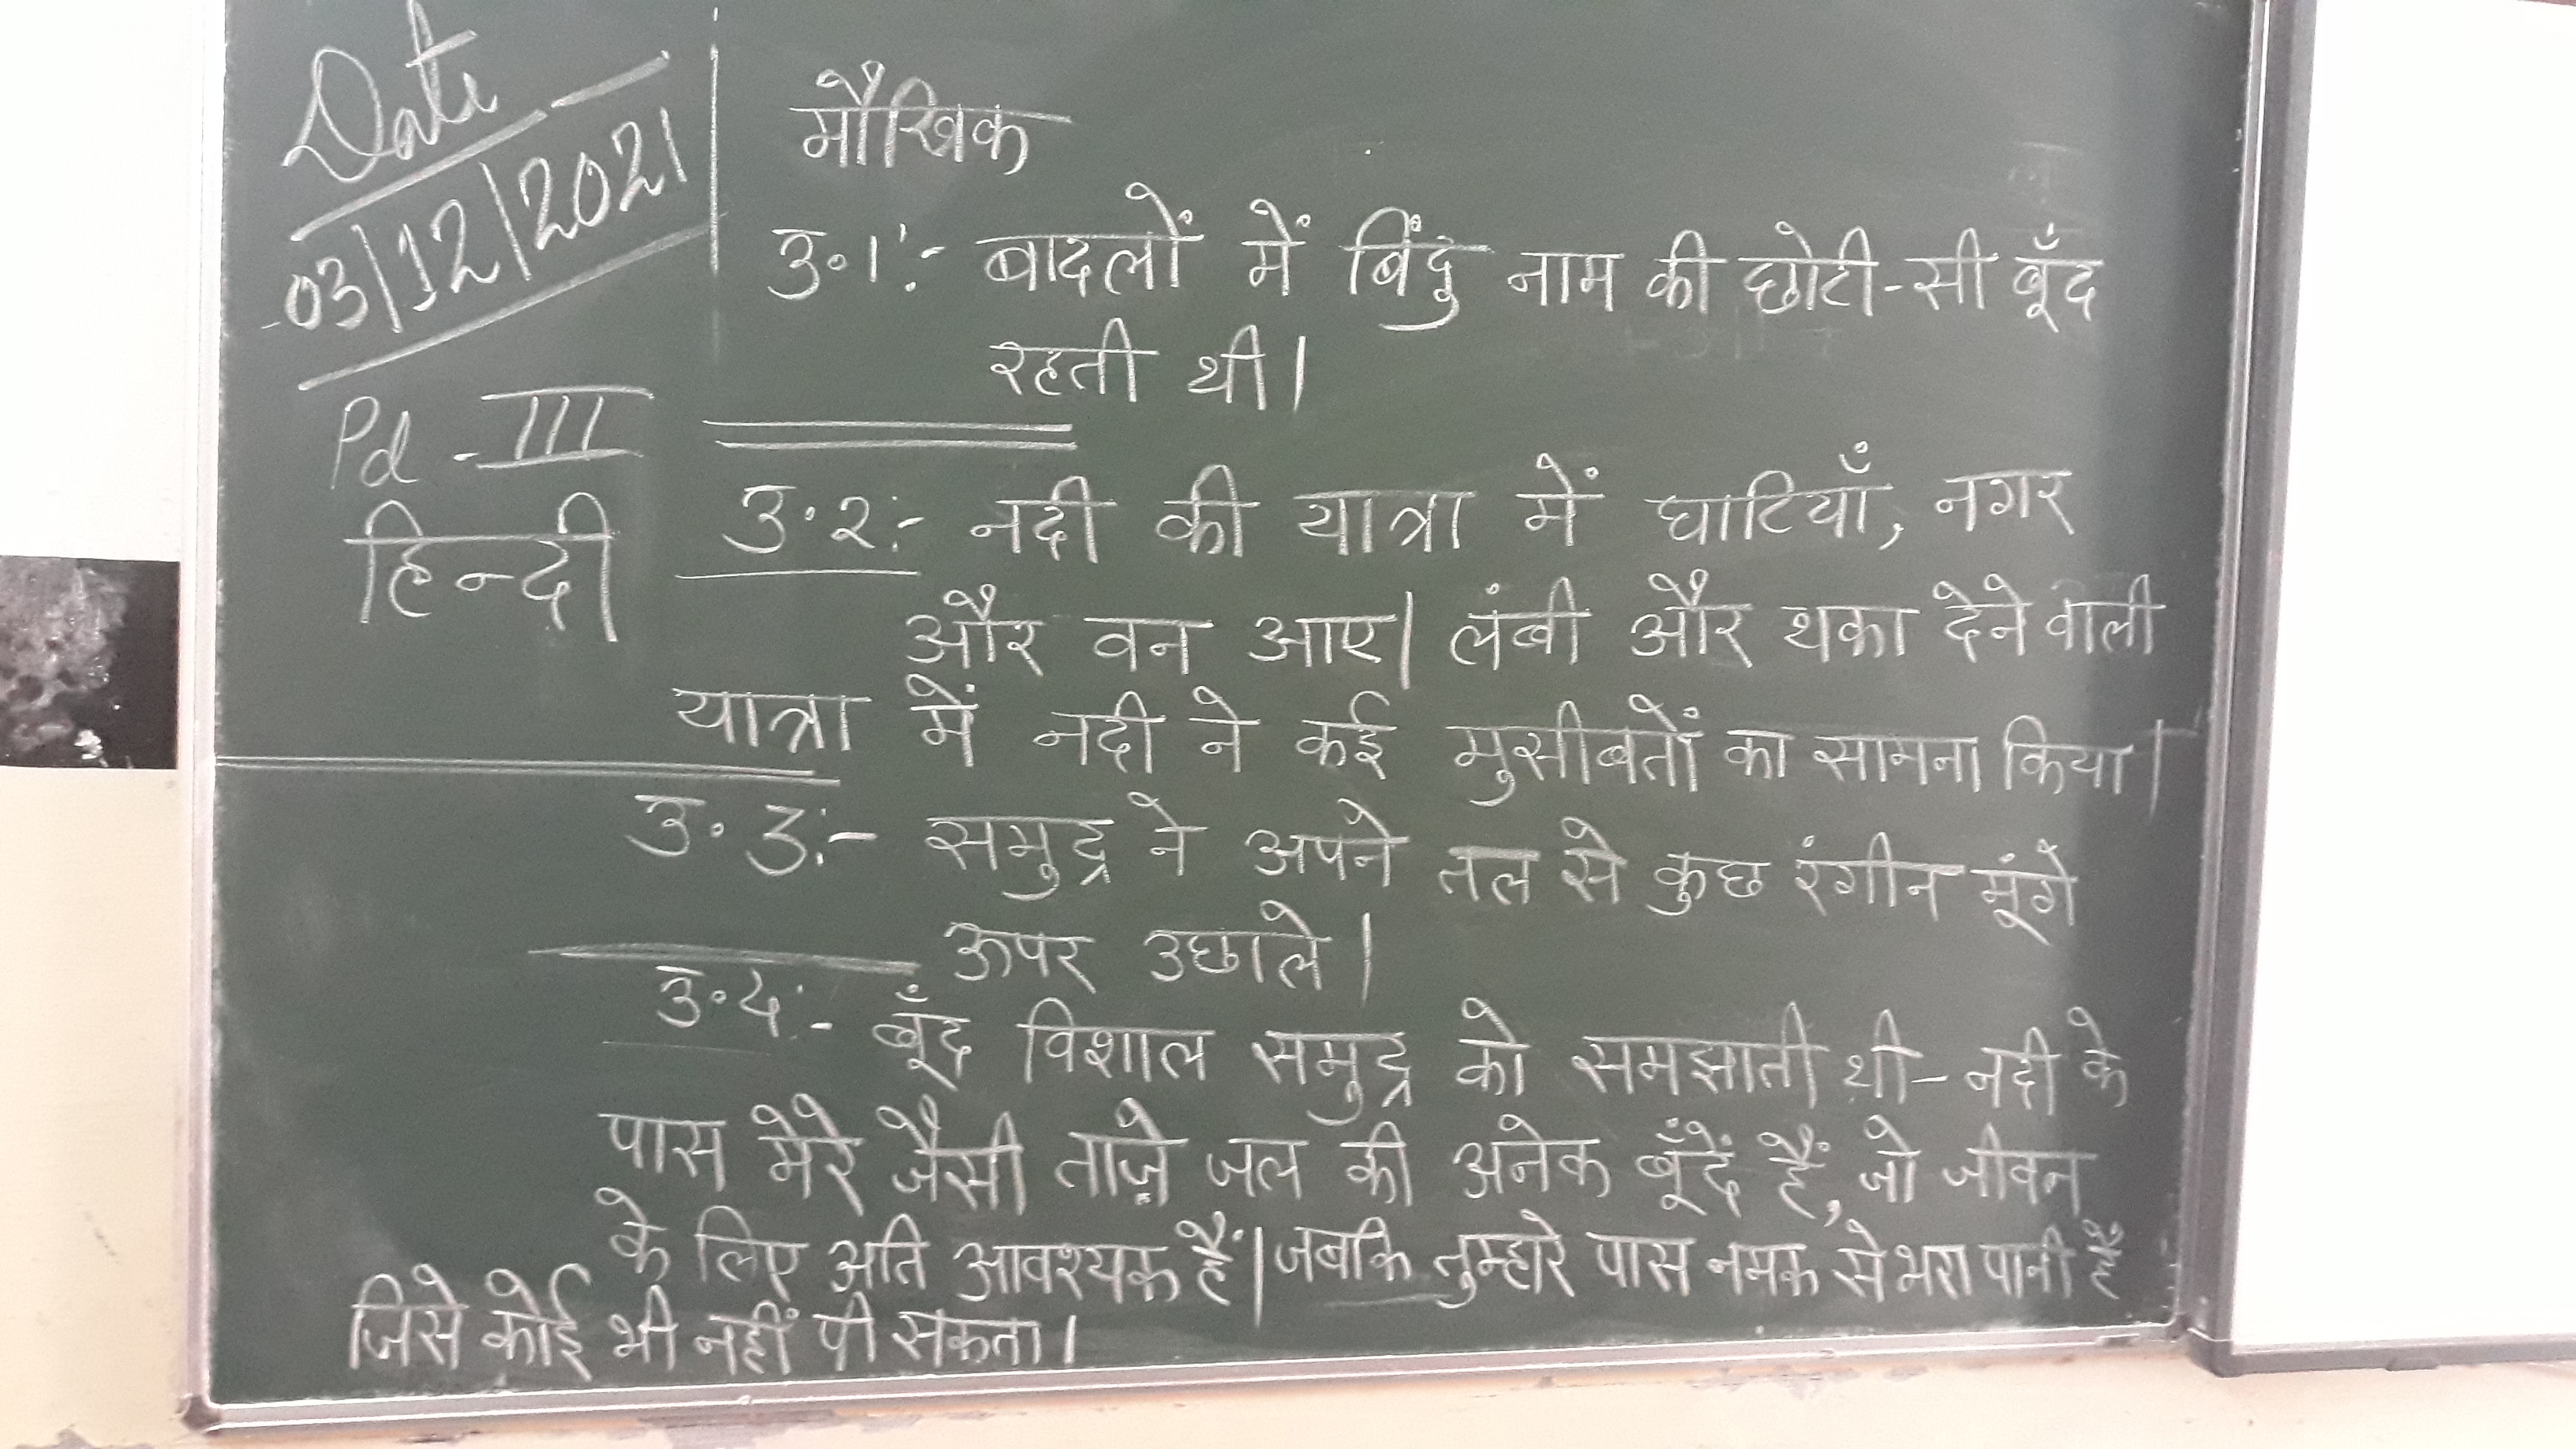 Date
03/12/2021
Pd - III
हिन्दी
मौखिक
उ.1:- बादलों में बिंदु नाम की छोटी-सी बूँद
रहती थी।
उ.२:- नदी की यात्रा में घाटियाँ, नगर
और वन आए। लंबी और थका देने वाली
यात्रा में नदी ने कई मुसीबतों का सामना किया।
उ.3:- समुद्र ने अपने तल से कुछ रंगीन मूंगे
ऊपर उछाले।
उ.4:- बूँद विशाल समुद्र को समझाती थी- नदी के
पास मेरे जैसी ताज़े जल की अनेक बूँदें हैं, जो जीवन
के लिए अति आवश्यक हैं। जबकि तुम्हारे पास नमक से भरा पानी है
जिसे कोई भी नहीं पी सकता।